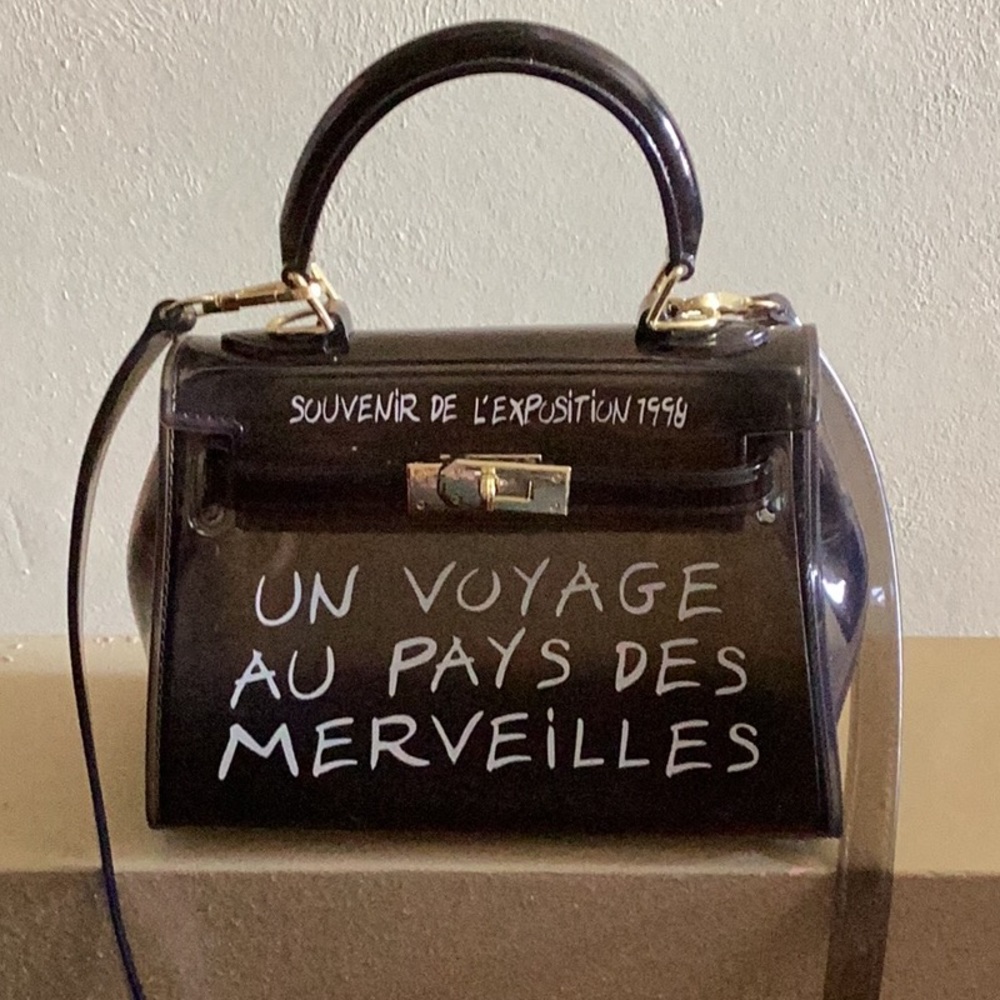 SOUVENIR DE L'EXPOSITION 1998
UN VOYAGE
AU PAYS DES
MERVEILLES